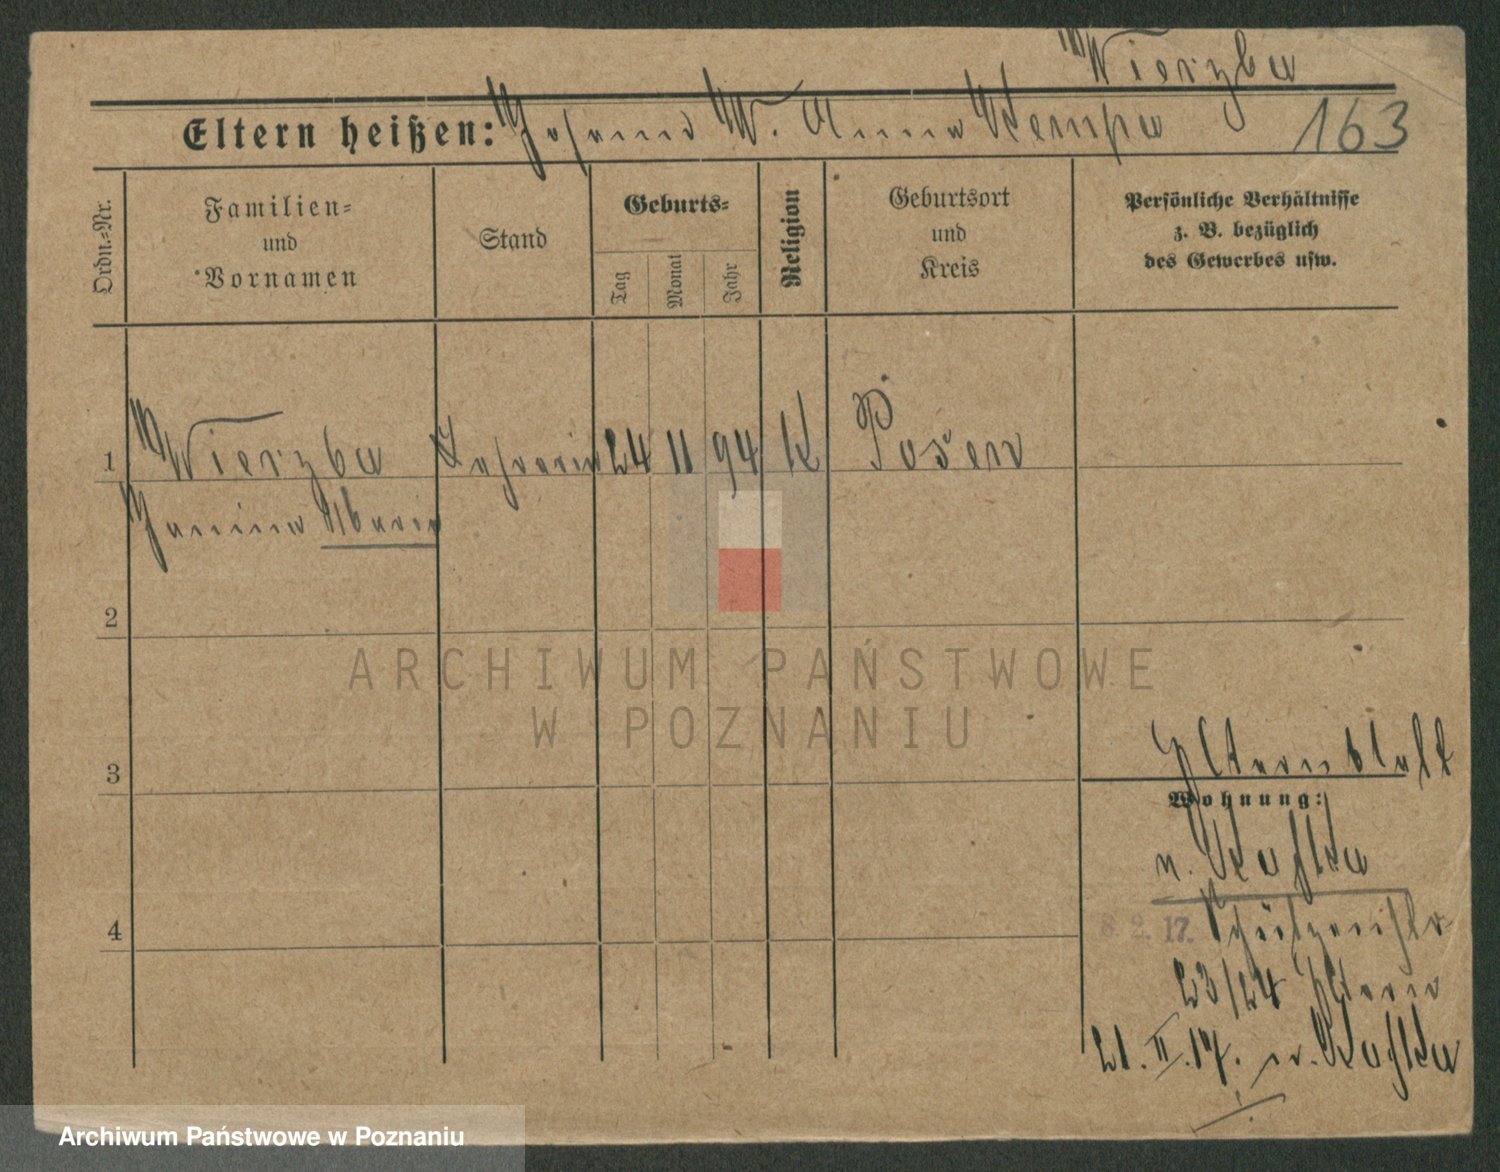 Wierzba
Eltern heißen: Johann W. Anna Kempa 163
Ordn.=Nr.
Familien=
und
Vornamen
Stand
Geburts=
Tag
Monat
Jahr
Religion
Geburtsort
und
Kreis
Persönliche Verhältnisse
z. B. bezüglich
des Gewerbes usw.
1 Wierzba Lehrerin 24 11 94 K Posen
Janina Maria
2
ARCHIWUM PAŃSTWOWE
W POZNANIU
3
Elternblatt
Wohnung:
n.
4
8. 2. 17. Schützenstr
23/24 Eltern
21. II. 17. n.
Archiwum Państwowe w Poznaniu